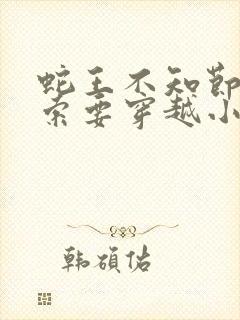 蛇王不知节
索要穿越小
韩硕佑